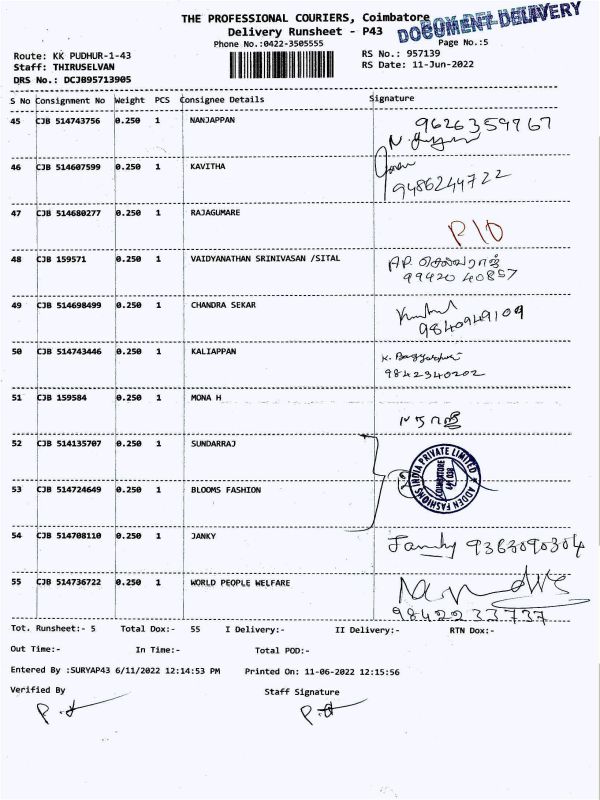 THE PROFESSIONAL COURIERS, Coimbatore
DOCUMENT DELIVERY
Delivery Runsheet - P43
Phone No.:0422-3505555
Page No.:5
Route: KK PUDHUR-1-43
RS No.: 957139
Staff: THIRUSELVAN
RS Date: 11-Jun-2022
DRS No.: DCJB95713905
S No Consignment No Weight PCS Consignee Details Signature
45 CJB 514743756 0.250 1 NANJAPPAN 9626359767
46 CJB 514607599 0.250 1 KAVITHA
9486244722
47 CJB 514680277 0.250 1 RAJAGUMARE
P/D
48 CJB 159571 0.250 1 VAIDYANATHAN SRINIVASAN /SITAL AP. செல்வராஜ்
99420 40857
49 CJB 514698499 0.250 1 CHANDRA SEKAR
9840949109
50 CJB 514743446 0.250 1 KALIAPPAN
9842340202
51 CJB 159584 0.250 1 MONA H
52 CJB 514135707 0.250 1 SUNDARRAJ
ADDEN FASHIONS INDIA PRIVATE LIMITED
COIMBATORE
53 CJB 514724649 0.250 1 BLOOMS FASHION
54 CJB 514708110 0.250 1 JANKY
9363090304
55 CJB 514736722 0.250 1 WORLD PEOPLE WELFARE
9842233737
Tot. Runsheet:- 5 Total Dox:- 55 I Delivery:- II Delivery:- RTN Dox:-
Out Time:- In Time:- Total POD:-
Entered By :SURYAP43 6/11/2022 12:14:53 PM Printed On: 11-06-2022 12:15:56
Verified By Staff Signature